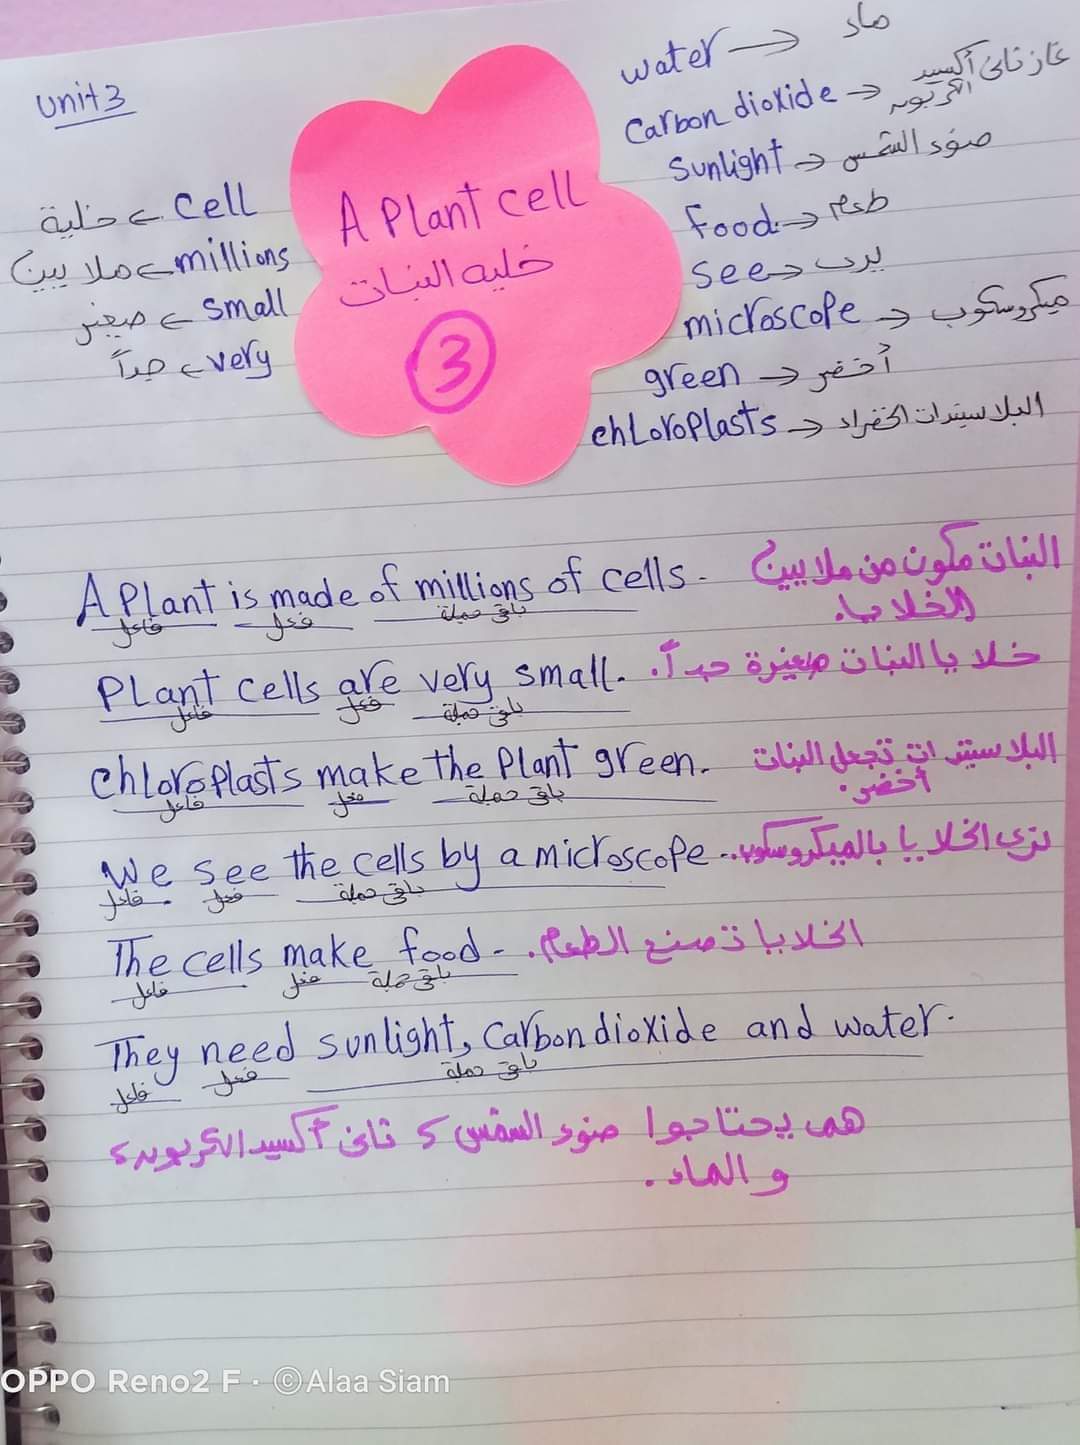 Unit 3
A Plant cell
خلية النبات
3
Cell → خلية
millions → ملايين
small → صغير
very → جداً
water → ماء
Carbon dioxide → غاز ثاني أكسيد الكربون
Sunlight → ضوء الشمس
Food → طعام
see → يرى
microscope → ميكروسكوب
green → أخضر
chloroplasts → البلاستيدات الخضراء
A Plant is made of millions of cells. النبات مكون من ملايين
فاعل فعل باقي جملة
الخلايا.
Plant cells are very small. خلايا النبات صغيرة جداً.
فاعل فعل باقي جملة
Chloroplasts make the Plant green. البلاستيدات تجعل النبات
فاعل فعل باقي جملة
أخضر.
We see the cells by a microscope. نرى الخلايا بالميكروسكوب.
فاعل فعل باقي جملة
The cells make food. الخلايا تصنع الطعام.
فاعل فعل باقي جملة
They need sunlight, Carbon dioxide and water.
فاعل فعل باقي جملة
هم يحتاجوا ضوء الشمس و ثاني أكسيد الكربون و
والماء.
OPPO Reno2 F · ©Alaa Siam